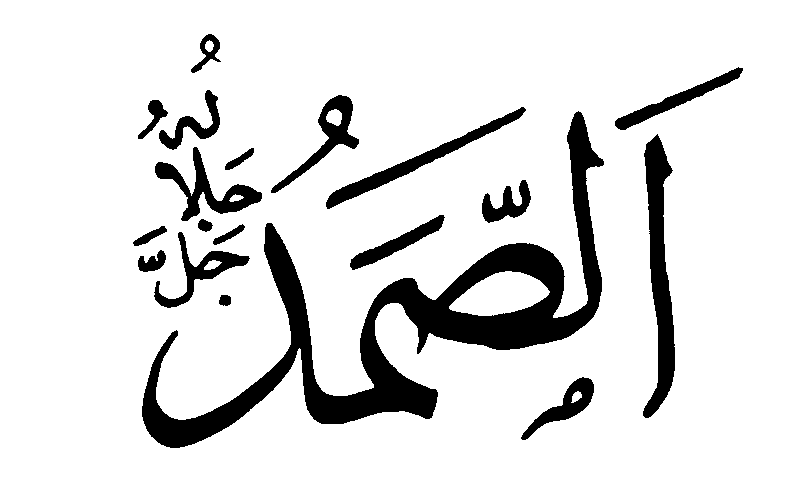 اَلصَّمَدُ
جَلَّ جَلَالُهُ